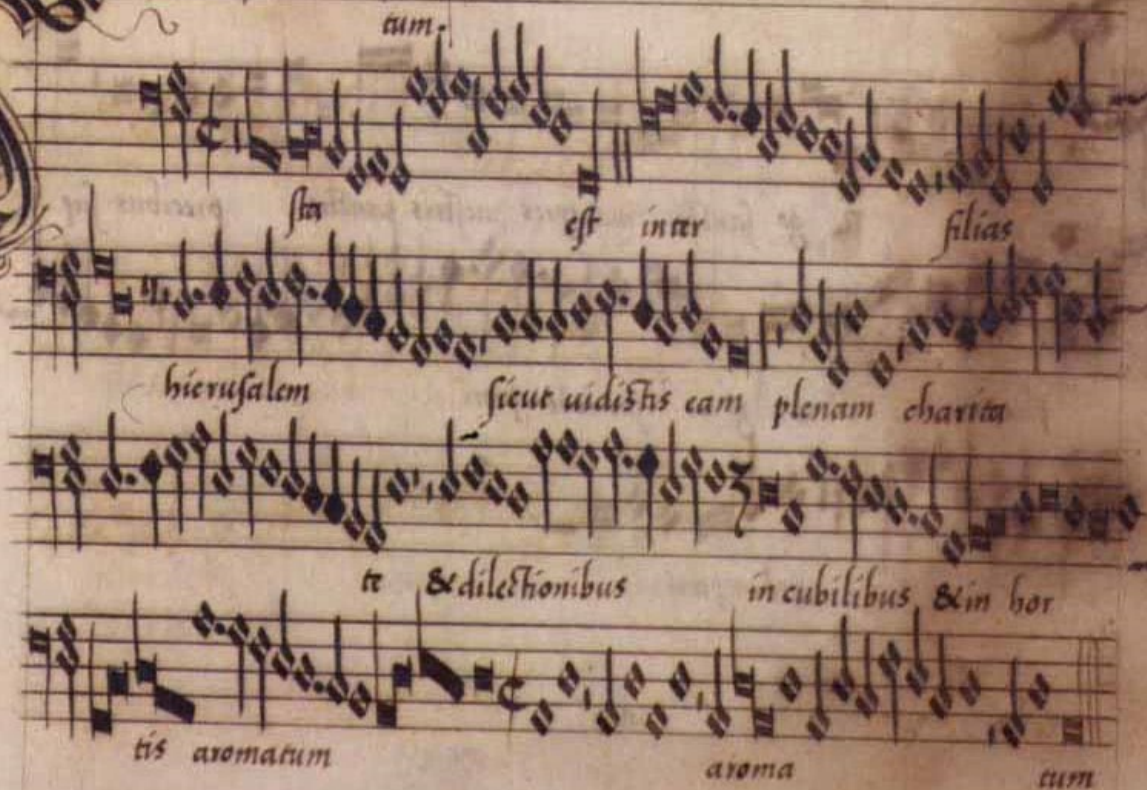 tum.
sta est inter filias
hierusalem sicut uidistis eam plenam charita
te & dilectionibus in cubilibus & in hor
tis aromatum aroma tum